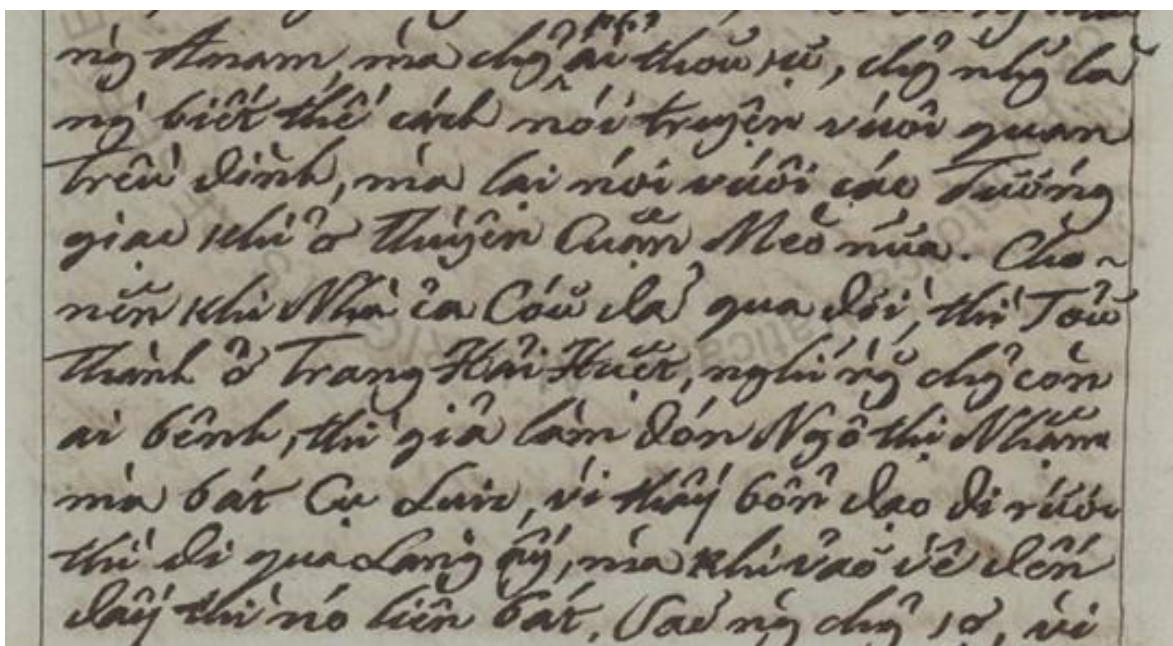 ng̃ Annam, mà chg̃ phải ai thoũ sũ, chg̃ nhg̃ là
ng̃ biết thế cách nói truyện vuối quan
triều đình, mà lại nói vuối các Tướng
giặc khi ở thuyền Cuăn Mẻo nữa. Cho
nên khi Nhà ếa Cóũ đã qua đời, thì Toũ
thành ở Trang Hải Huiết, nghĩ rg̃ chg̃ còn
ai bênh, thì giả làm đón Ngô thị Nhăm
mà bát Cụ Luis, vì thấy bổn đạo đi rước
thì đi qua Làng ấy, mà khi vào vê đến
đấy thì nó liền bát. Saũ ng̃ chg̃ sợ, vì